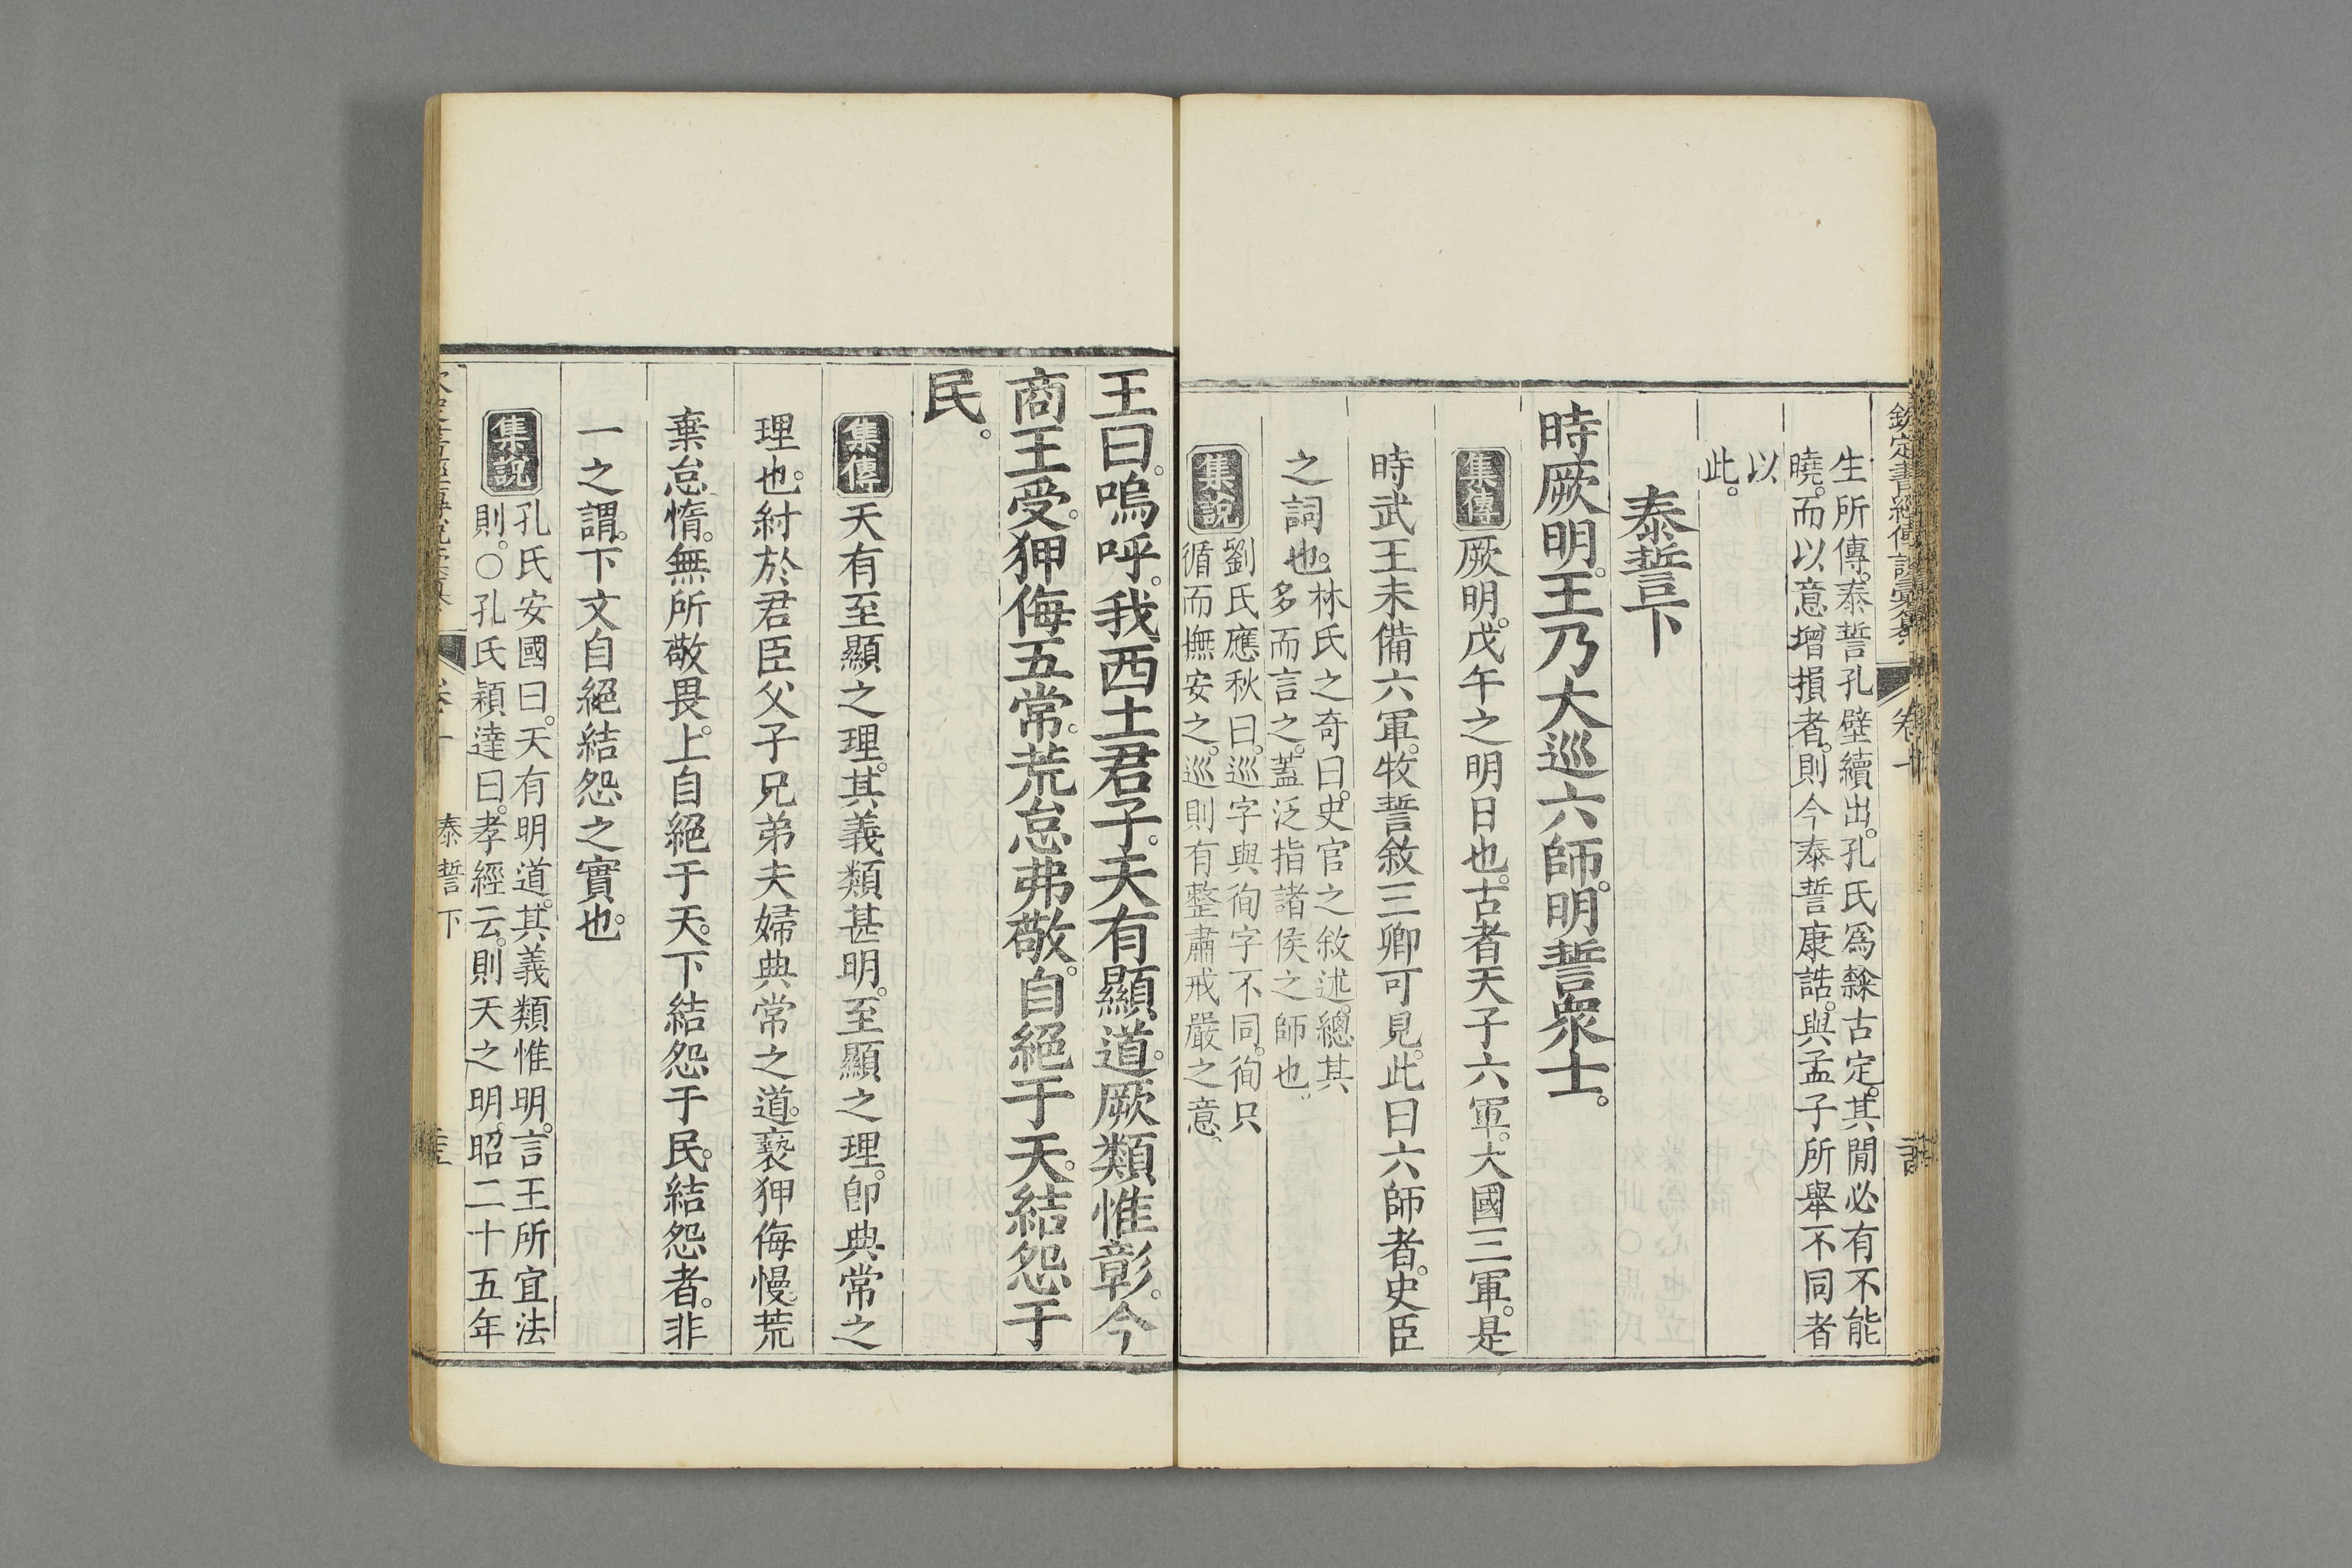 欽定書經傳說彙纂
卷十一
生所傳。泰誓孔壁續出。孔氏爲隸古定。其閒必有不能
曉。而以意增損者。則今泰誓康誥。與孟子所舉不同者
以
此。
泰誓下
時厥明。王乃大巡六師。明誓衆士。
集傳 厥明。戊午之明日也。古者天子六軍。大國三軍。是
時武王未備六軍。牧誓敘三卿可見。此曰六師者。史臣
之詞也。
林氏之奇曰。史官之敘述。總其
多而言之。蓋泛指諸侯之師也。
集說
劉氏應秋曰。巡字與徇字不同。徇只
循而撫安之。巡則有整肅戒嚴之意。
王曰。嗚呼。我西土君子。天有顯道。厥類惟彰。今
商王受。狎侮五常。荒怠弗敬。自絕于天。結怨于
民。
集傳 天有至顯之理。其義類甚明。至顯之理。卽典常之
理也。紂於君臣父子兄弟夫婦典常之道。褻狎侮慢。荒
棄怠惰。無所敬畏。上自絕于天。下結怨于民。結怨者。非
一之謂。下文自絕結怨之實也。
集說
孔氏安國曰。天有明道。其義類惟明。言王所宜法
則。○孔氏穎達曰。孝經云。則天之明。昭二十五年
泰誓下